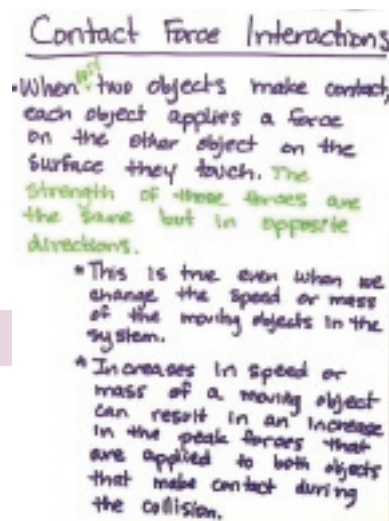 Contact Force Interactions
• When any two objects make contact,
each object applies a force
on the other object on the
surface they touch. The
strength of those forces are
the same but in opposite
directions.
* This is true even when we
change the speed or mass
of the moving objects in the
system.
* Increases in speed or
mass of a moving object
can result in an increase
in the peak forces that
are applied to both objects
that make contact during
the collision.